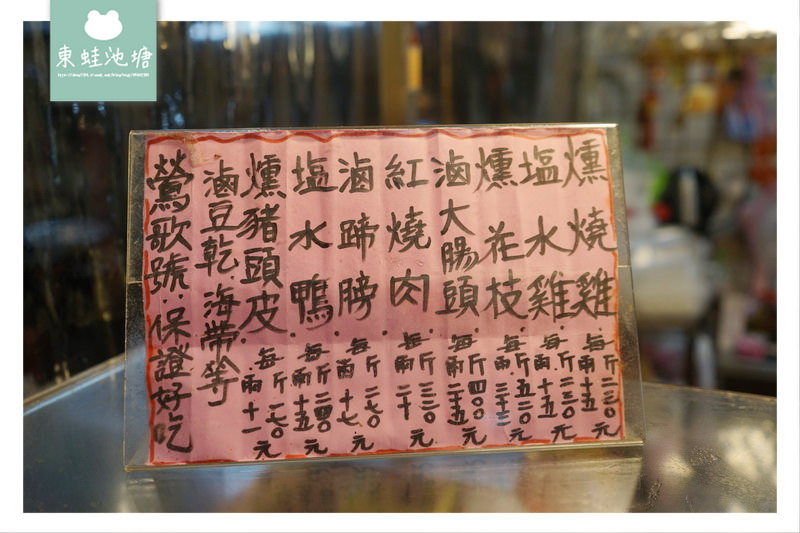 東蛙池塘
燻燒雞 每斤二三〇 每兩十五元
塩水雞 每斤二三〇 每兩十五元
燻花枝 每斤五二〇
滷大腸頭 每斤四〇〇 每兩二十五元
紅燒肉 每斤三二〇 每兩二十元
滷蹄膀 每斤二七〇 每兩十七元
塩水鴨 每斤二四〇 每兩十五元
燻豬頭皮 每斤一七〇 每兩十一元
滷豆乾.海帶等
鶯歌號.保證好吃